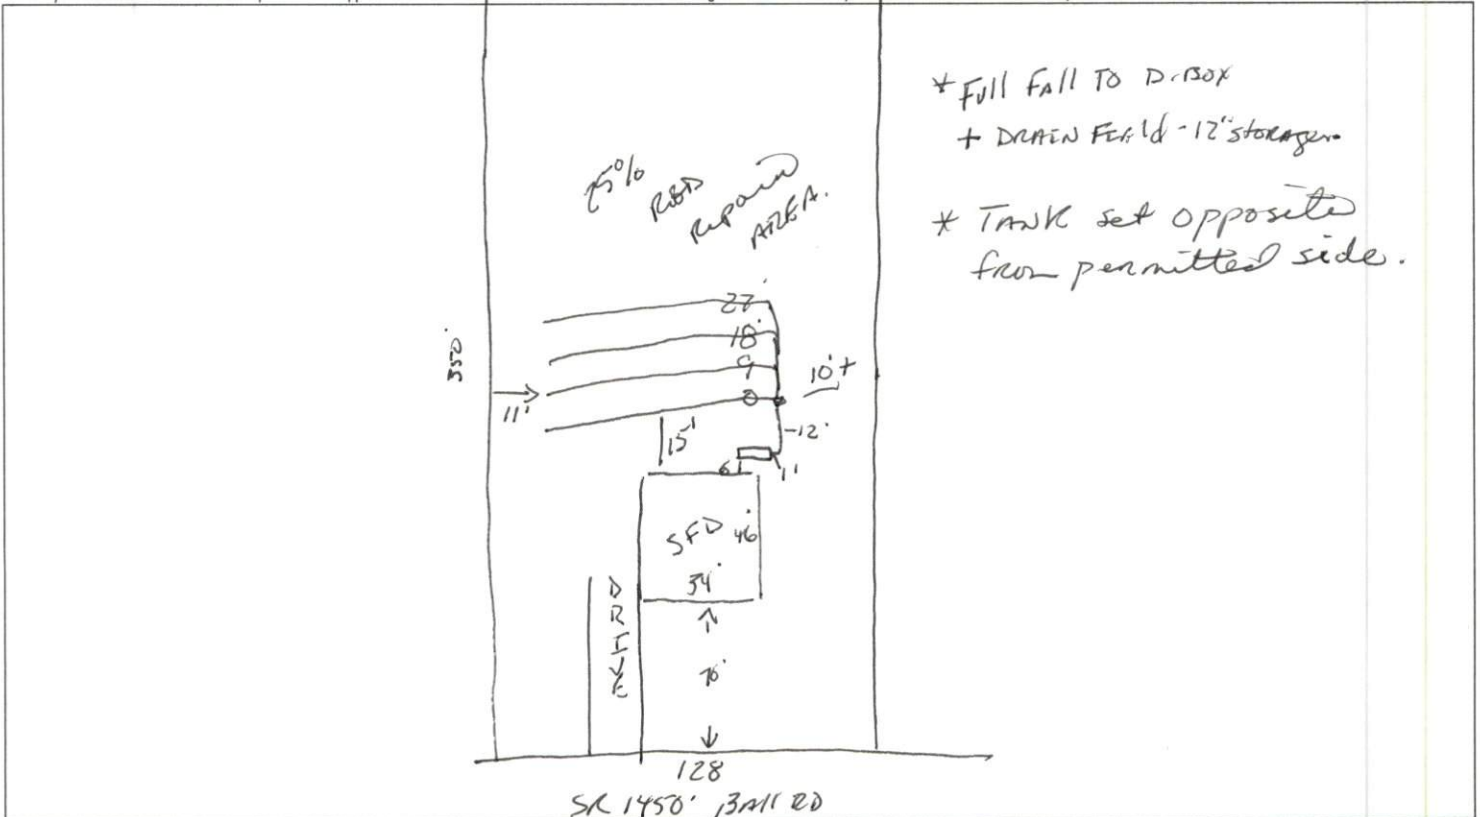 * Full Fall To D-Box
+ DRAIN Feild - 12" storage
* TANK set opposite
from permitted side.
25%
RED
Repair
AREA.
27'
18'
9
0
10'+
350'
11'
15'
-12'
6'
1'
SFD
46'
34'
DRIVE
128
SR 1450' Ball RD